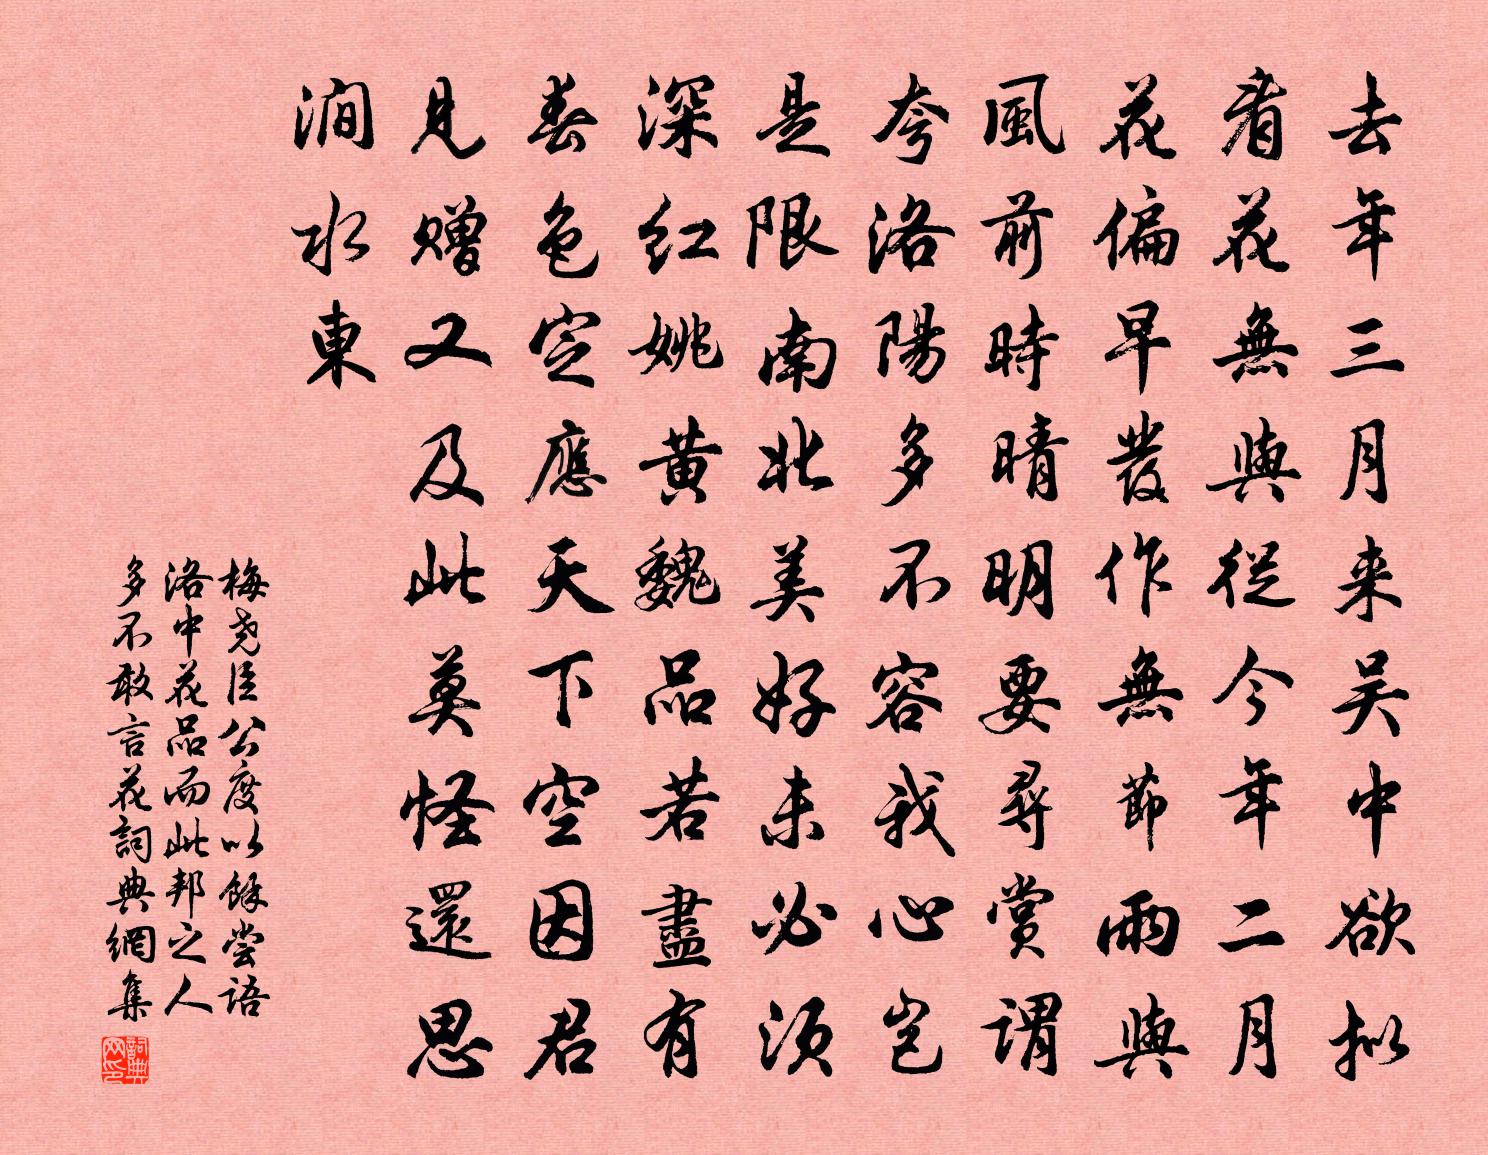 去年三月来吴中欲拟
看花無與從今年二月
花偏早發作無節雨與
風前時晴明要尋賞謂
夸洛陽多不容我心豈
是限南北美好未必須
深红姚黄魏品若盡有
春色定應天下空因君
見贈又及此莫怪還思
澗水東
梅尧臣公度以餘尝语
洛中花品而此邦之人
多不敢言花詞典網集
詞典网印